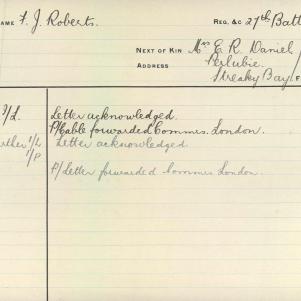 NAME F. J. Roberts. REG. &C 27th Batt
NEXT OF KIN Mrs E. R. Daniel
ADDRESS Perlubie
Streaky Bay
Letter acknowledged.
P/Cable forwarded Commrs. London.
Letter acknowledged
P/Letter forwarded Commrs London.